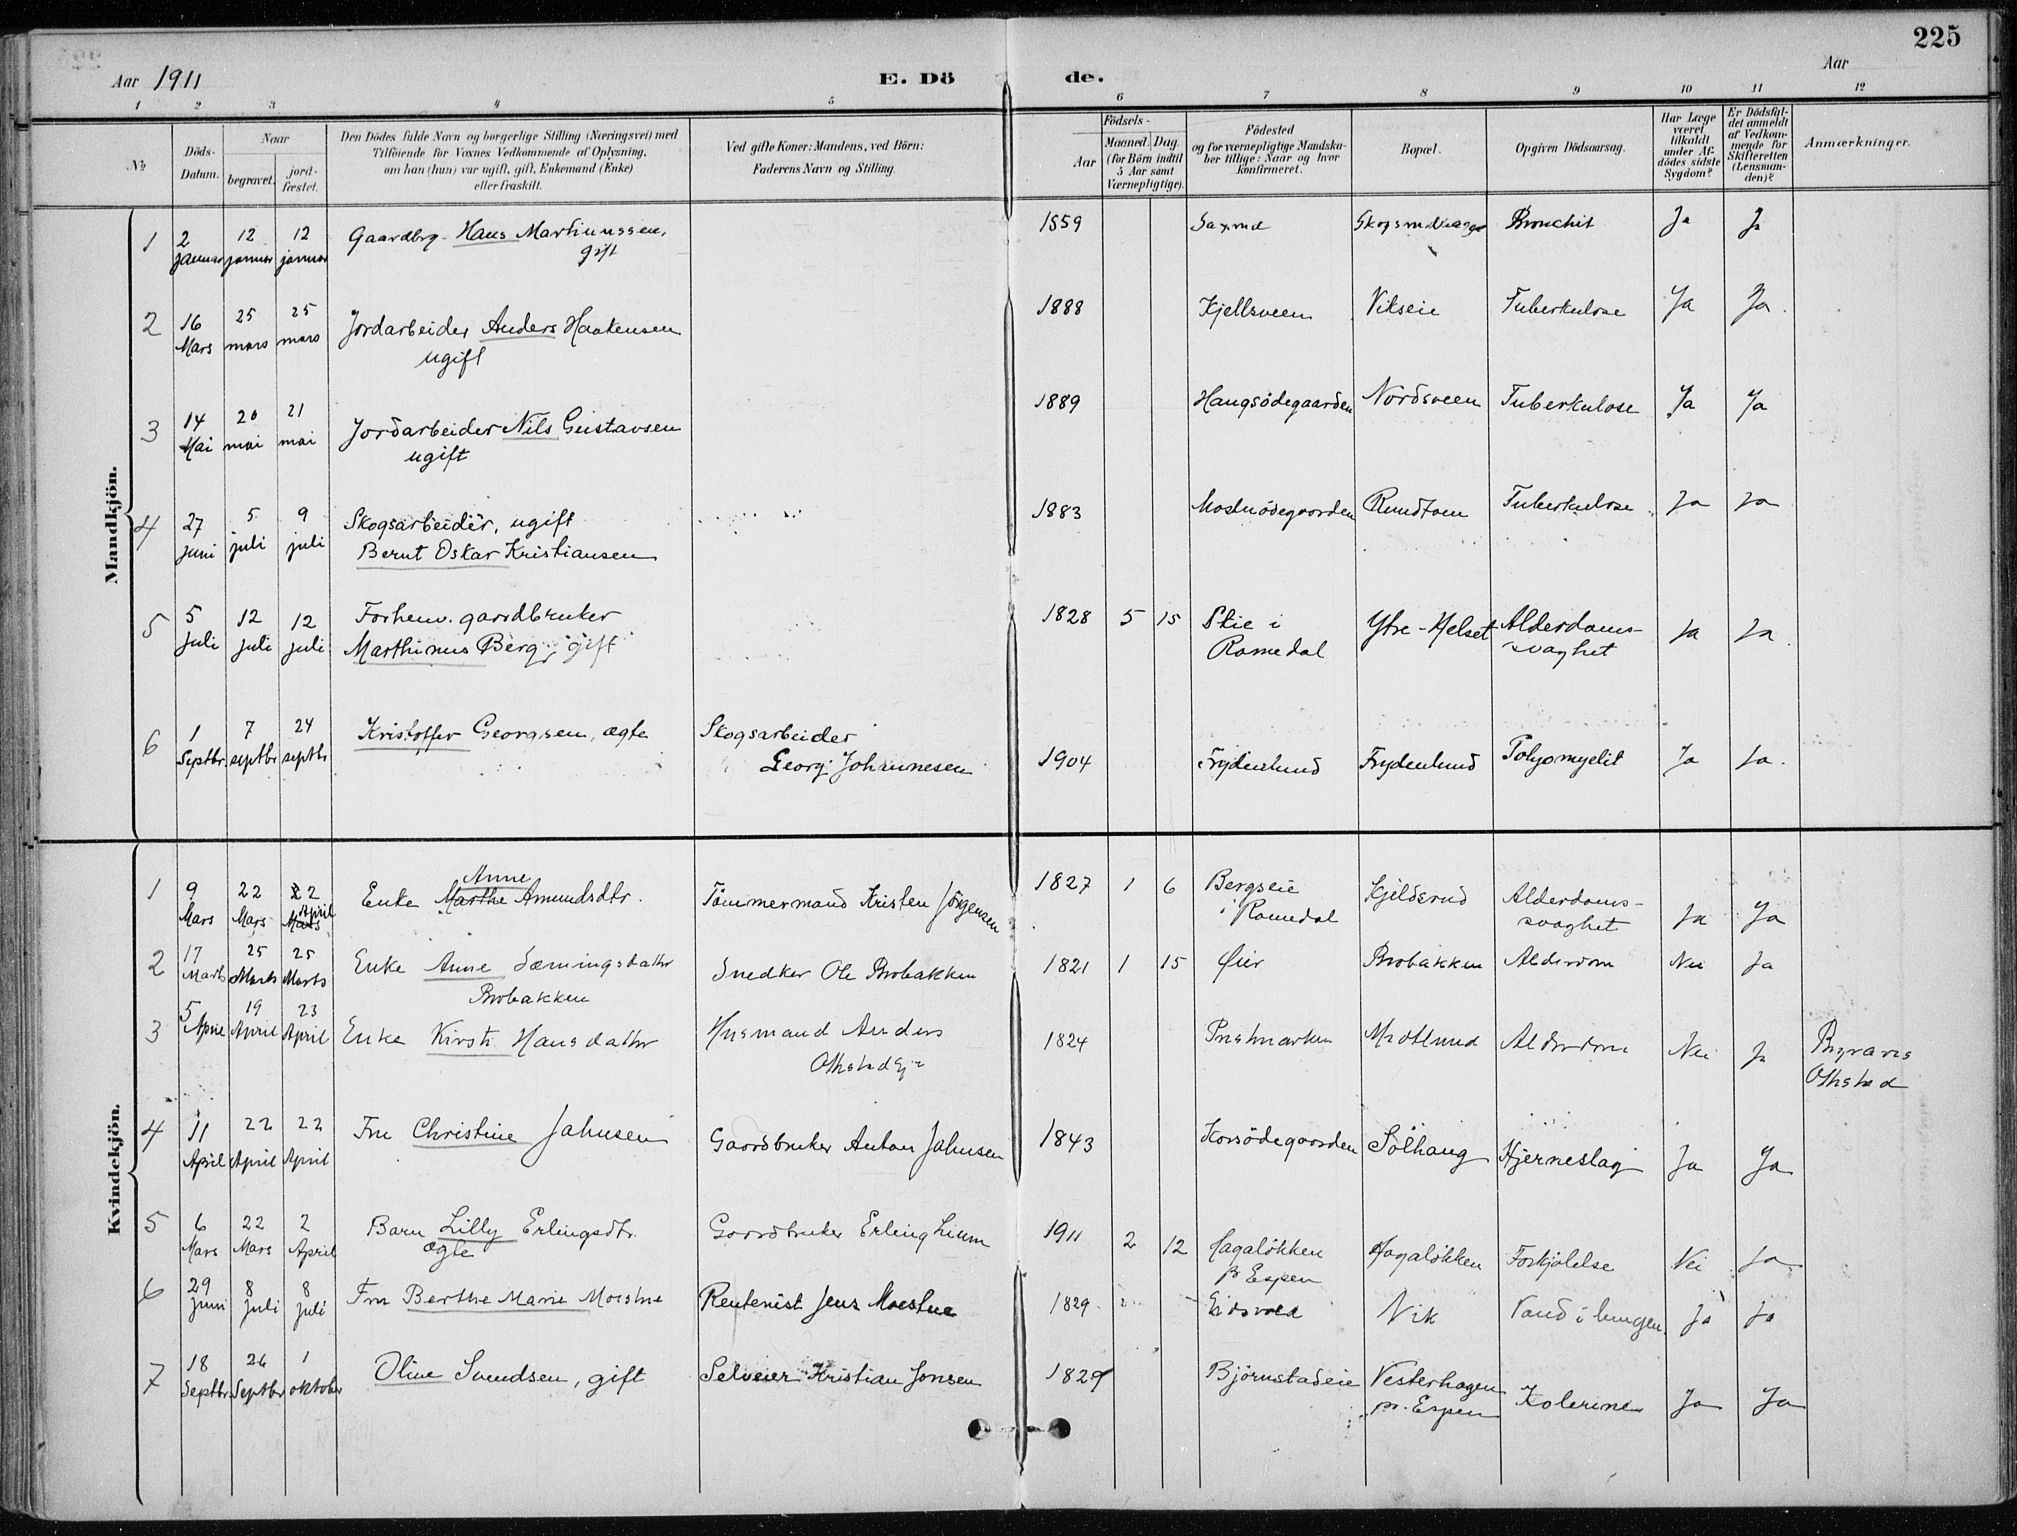 225
Aar 1911
E. Dö
de.
Aar
1 2 3 4 5 6 7 8 9 10 11 12
№
Döds-
Datum.
Naar
begravet.
jord-
fæstet.
Den Dödes fulde Navn og borgerlige Stilling (Næringsvei) med
Tilföiende for Voxnes Vedkommende af Oplysning,
om han (hun) var ugift, gift, Enkemand (Enke)
eller fraskilt.
Ved gifte Koner: Mandens, ved Börn:
Faderens Navn og Stilling.
Födsels-
Aar
Maaned. Dag.
(for Börn indtil
5 Aar samt
Værnepligtige).
Födested
og for værnepligtige Mandska-
ber tillige: Naar og hvor
konfirmeret.
Bopæl.
Opgiven Dödsaarsag.
Har Læge
været
tilkaldt
under Af-
dödes sidste
Sygdom?
Er Dödsfal-
det anmeldt
af Vedkom-
mende for
Skifteretten
(Lensman-
den)?
Anmærkninger.
Mandkjön.
1 2 januar 12 januar 12 januar Gaardbrg. Hans Martinussen, 1859 Bronchit Ja Ja
gift
2 16 Mars 25 mars 25 mars Jordarbeider Anders Haakensen 1888 Kjellsveen Vikseie Tuberkulose Ja Ja.
ugift
3 14 Mai 20 mai 21 mai Jordarbeider Nils Gustavsen 1889 Haugsödegaarden Nordsveen Tuberkulose Ja Ja
ugift
4 27 juni 5 juli 9 juli Skogsarbeider, ugift 1883 Rundtom Tuberkulose Ja Ja
Bernt Oskar Kristiansen
5 5 juli 12 juli 12 juli Forhenv. gardbruker 1828 5 15 Stie i Ytre-Kjelset Alderdoms- Ja Ja
Marthinus Berg, gift Romedal svaghet
6 1 Septbr. 7 septbr 24 septbr Kristoffer Georgsen, ægte Skogsarbeider
Georg Johannesen 1904 Frydenlund Frydenlund Polyomyelit Ja Ja.
Kvindekjön.
1 9 Mars 22 Mars 22 Mars April Enke Marthe Anne Amundsdtr. Tömmermand Kristen Jörgensen 1827 1 6 Bergseie Kjeldsrud Alderdoms- Ja Ja
i Romedal svaghet
2 17 Marts 25 Marts 25 Marts Enke Anne Sæmingsdatter Snedker Ole Brobakken 1821 1 15 Øier Brobakken Alderdom Nei Ja
Brobakken
3 5 April 19 April 23 April Enke Kirsti Hansdatter Husmand Anders 1824 Prestmarken Midtlund Alderdom Nei Ja
Othstad
4 11 April 22 April 22 April Fru Christine Jahnsen Gaardbruker Anton Jahnsen 1843 Korsödegaarden Solhaug Hjerneslag Ja Ja
5 6 Mars 22 Mars 2 April Barn Lilly Erlingsdtr. Gaardbruker Erling Lium 1911 2 12 Hagalökken Hagalökken Forkjölelse Nei Ja
ægte pr Espen
6 29 juni 8 juli 8 juli Fru Berthe Marie Moestue Rentenist Jens Moestue 1829 Eidsvold Vik Vand i lungen. Ja Ja
7 18 Septbr. 26 Septbr 1 oktober Oline Svendsen, gift Selveier Kristian Jonsen 1829 Björnstadeie Vesterhagen Kolerine Ja Ja
pr. Espen